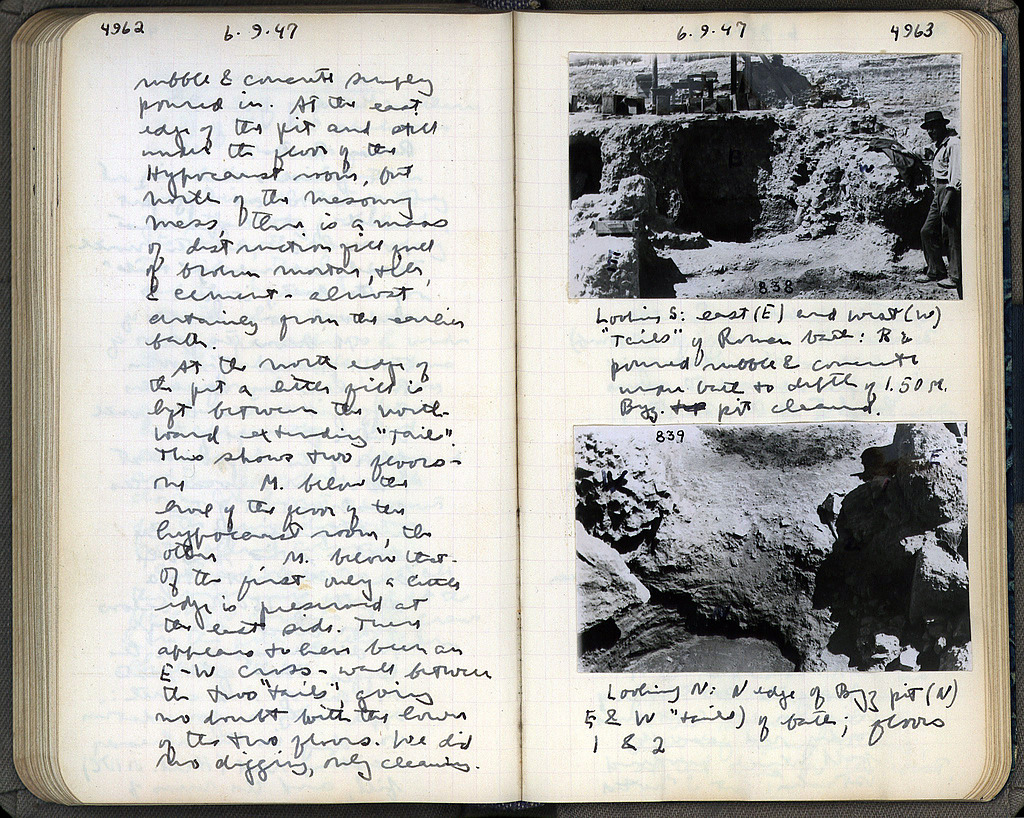 4962
6.9.47
rubble & concrete simply
poured in. At the east
edge of the pit and still
under the floor of the
Hypocaust room, but
north of the masonry
mass, there is a mass
of destruction fill full
of broken mortar, tiles,
& cement - almost
certainly from the earlier
bath.
At the north edge of
the pit a little fill is
left between the north-
ward extending "tails".
This shows two floors -
one M. below the
level of the floor of the
hypocaust room, the
other M. below that.
Of the first only a little
edge is preserved at
the east side. There
appears to have been an
E-W cross-wall between
the two "tails", going
no doubt with the lower
of the two floors. We did
no digging, only cleaning.
6.9.47
4963
E
W
838
Looking S: east (E) and west (W)
"Tails" of Roman bath: B is
poured rubble & concrete
under bath to depth of 1.50 M.
Byz. pit cleaned.
839
Looking N: N edge of Byz pit (N)
E & W "tails") of bath; floors
1 & 2